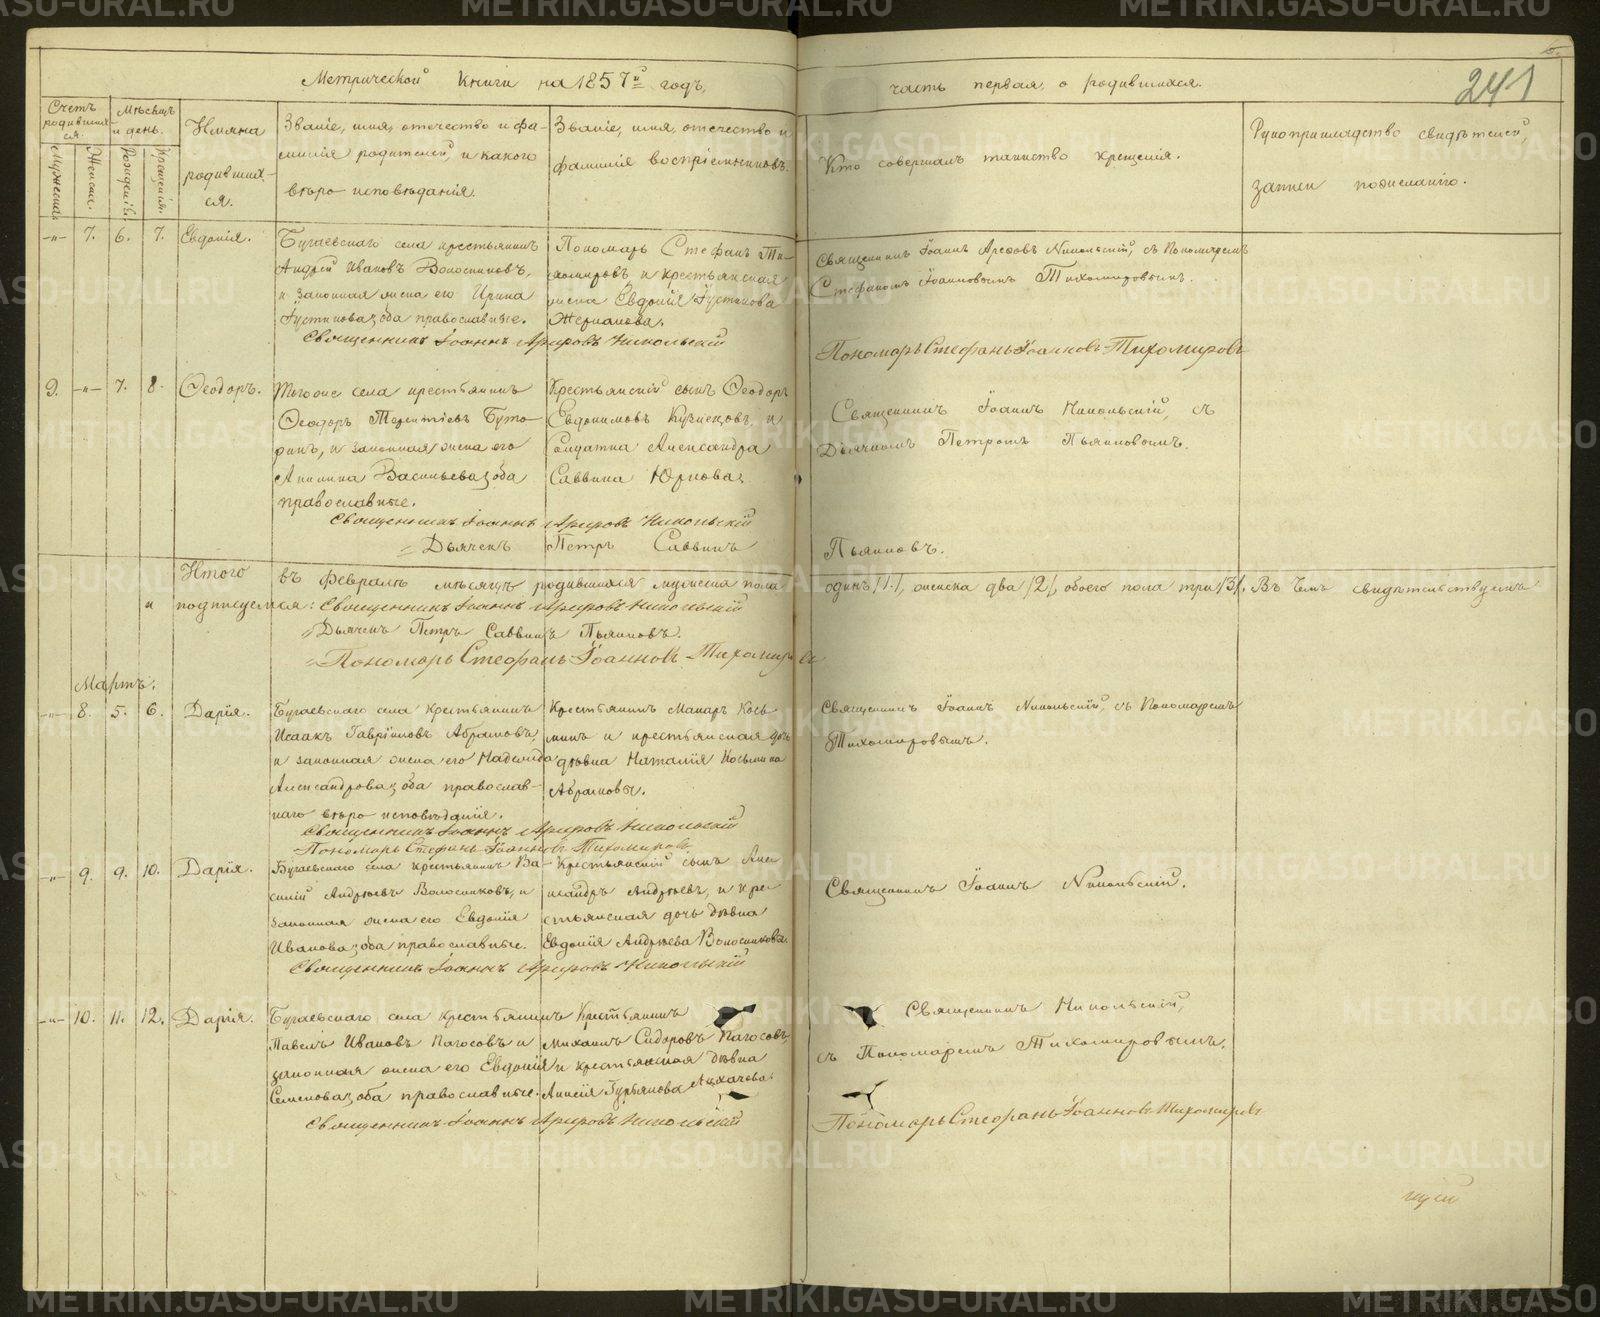 Метрической книги на 1857й годъ,
часть первая, о родившихся.
241
Счетъ родившихся.
Мѣсяцъ и день.
Мужеска.
Женска.
Рожденія.
Крещенія.
Имяна родившихся.
Званіе, имя, отечество и фамилія родителей, и какого вѣро исповѣданія.
Званіе, имя, отечество и фамилія воспріемниковъ.
Кто совершалъ таинство крещенія.
Рукоприкладство свидѣтелей, записи пожеланію.
-„- 7. 6. 7. Евдокія.
Бугаевскаго села крестьянинъ
Андрей Ивановъ Волосниковъ,
и законная жена его Ирина
Іустинова, оба православные.
Пономарь Стефанъ Тихомировъ и крестьянская
жена Евдокія Іустинова
Священникъ Іоаннъ Арефовъ Никольскій, съ Пономаремъ
Стефаномъ Іоанновымъ Тихомировымъ.
Священникъ Іоаннъ Арефовъ Никольскій
Пономарь Стефанъ Іоанновъ Тихомировъ
2. -„- 7. 8. Ѳеодоръ.
Тогоже села крестьянинъ
Ѳеодоръ Терентіевъ Буторинъ, и законная жена его
Акилина Васильева, оба
православные.
Крестьянскій сынъ Ѳеодоръ
Евдокимовъ Кузнецовъ, и
Солдатка Александра
Саввина Юркова.
Священникъ Іоаннъ Никольскій, съ
Дьячкомъ Петромъ Пьянковымъ.
Священникъ Іоаннъ Арефовъ Никольскій
Дьячекъ Петръ Саввинъ Пьянковъ.
Итого въ Февралѣ мѣсяцѣ родившихся мужеска пола одинъ /1/, женска два /2/, обоего пола три /3/. Въ чемъ свидѣтельствуемъ
и подписуемся: Священникъ Іоаннъ Арефовъ Никольскій
Дьячекъ Петръ Саввинъ Пьянковъ.
Пономарь Стефанъ Іоанновъ Тихомировъ
Мартъ.
-„- 8. 5. 6. Дарія.
Бугаевскаго села крестьянинъ
Исаакъ Гавріиловъ Абрамовъ,
и законная жена его Надежда
Александрова, оба православнаго вѣро исповѣданія.
Крестьянинъ Макаръ Косьминъ и крестьянская дочь
дѣвка Наталія Косьмина
Абрамовы.
Священникъ Іоаннъ Никольскій, съ Пономаремъ
Тихомировымъ.
Священникъ Іоаннъ Арефовъ Никольскій
Пономарь Стефанъ Іоанновъ Тихомировъ
-„- 9. 9. 10. Дарія.
Бугаевскаго села крестьянинъ Василій Андреевъ Волосниковъ, и
законная жена его Евдокія
Иванова, оба православные.
Крестьянскій сынъ Александръ Андреевъ, и крестьянская дочь дѣвка
Евдокія Андреева Волосникова.
Священникъ Іоаннъ Никольскій.
Священникъ Іоаннъ Арефовъ Никольскій
-„- 10. 11. 12. Дарія.
Бугаевскаго села крестьянинъ
Павелъ Ивановъ Пагосовъ и
законная жена его Евдокія
Семенова, оба православные.
Крестьянинъ
Михаилъ Сидоровъ Пагосовъ,
и крестьянская дѣвка
Анисія Гурьянова
Священникъ Никольскій,
съ Пономаремъ Тихомировымъ.
Священникъ Іоаннъ Арефовъ Никольскій
Пономарь Стефанъ Іоанновъ Тихомировъ
METRIKI.GASO-URAL.RU